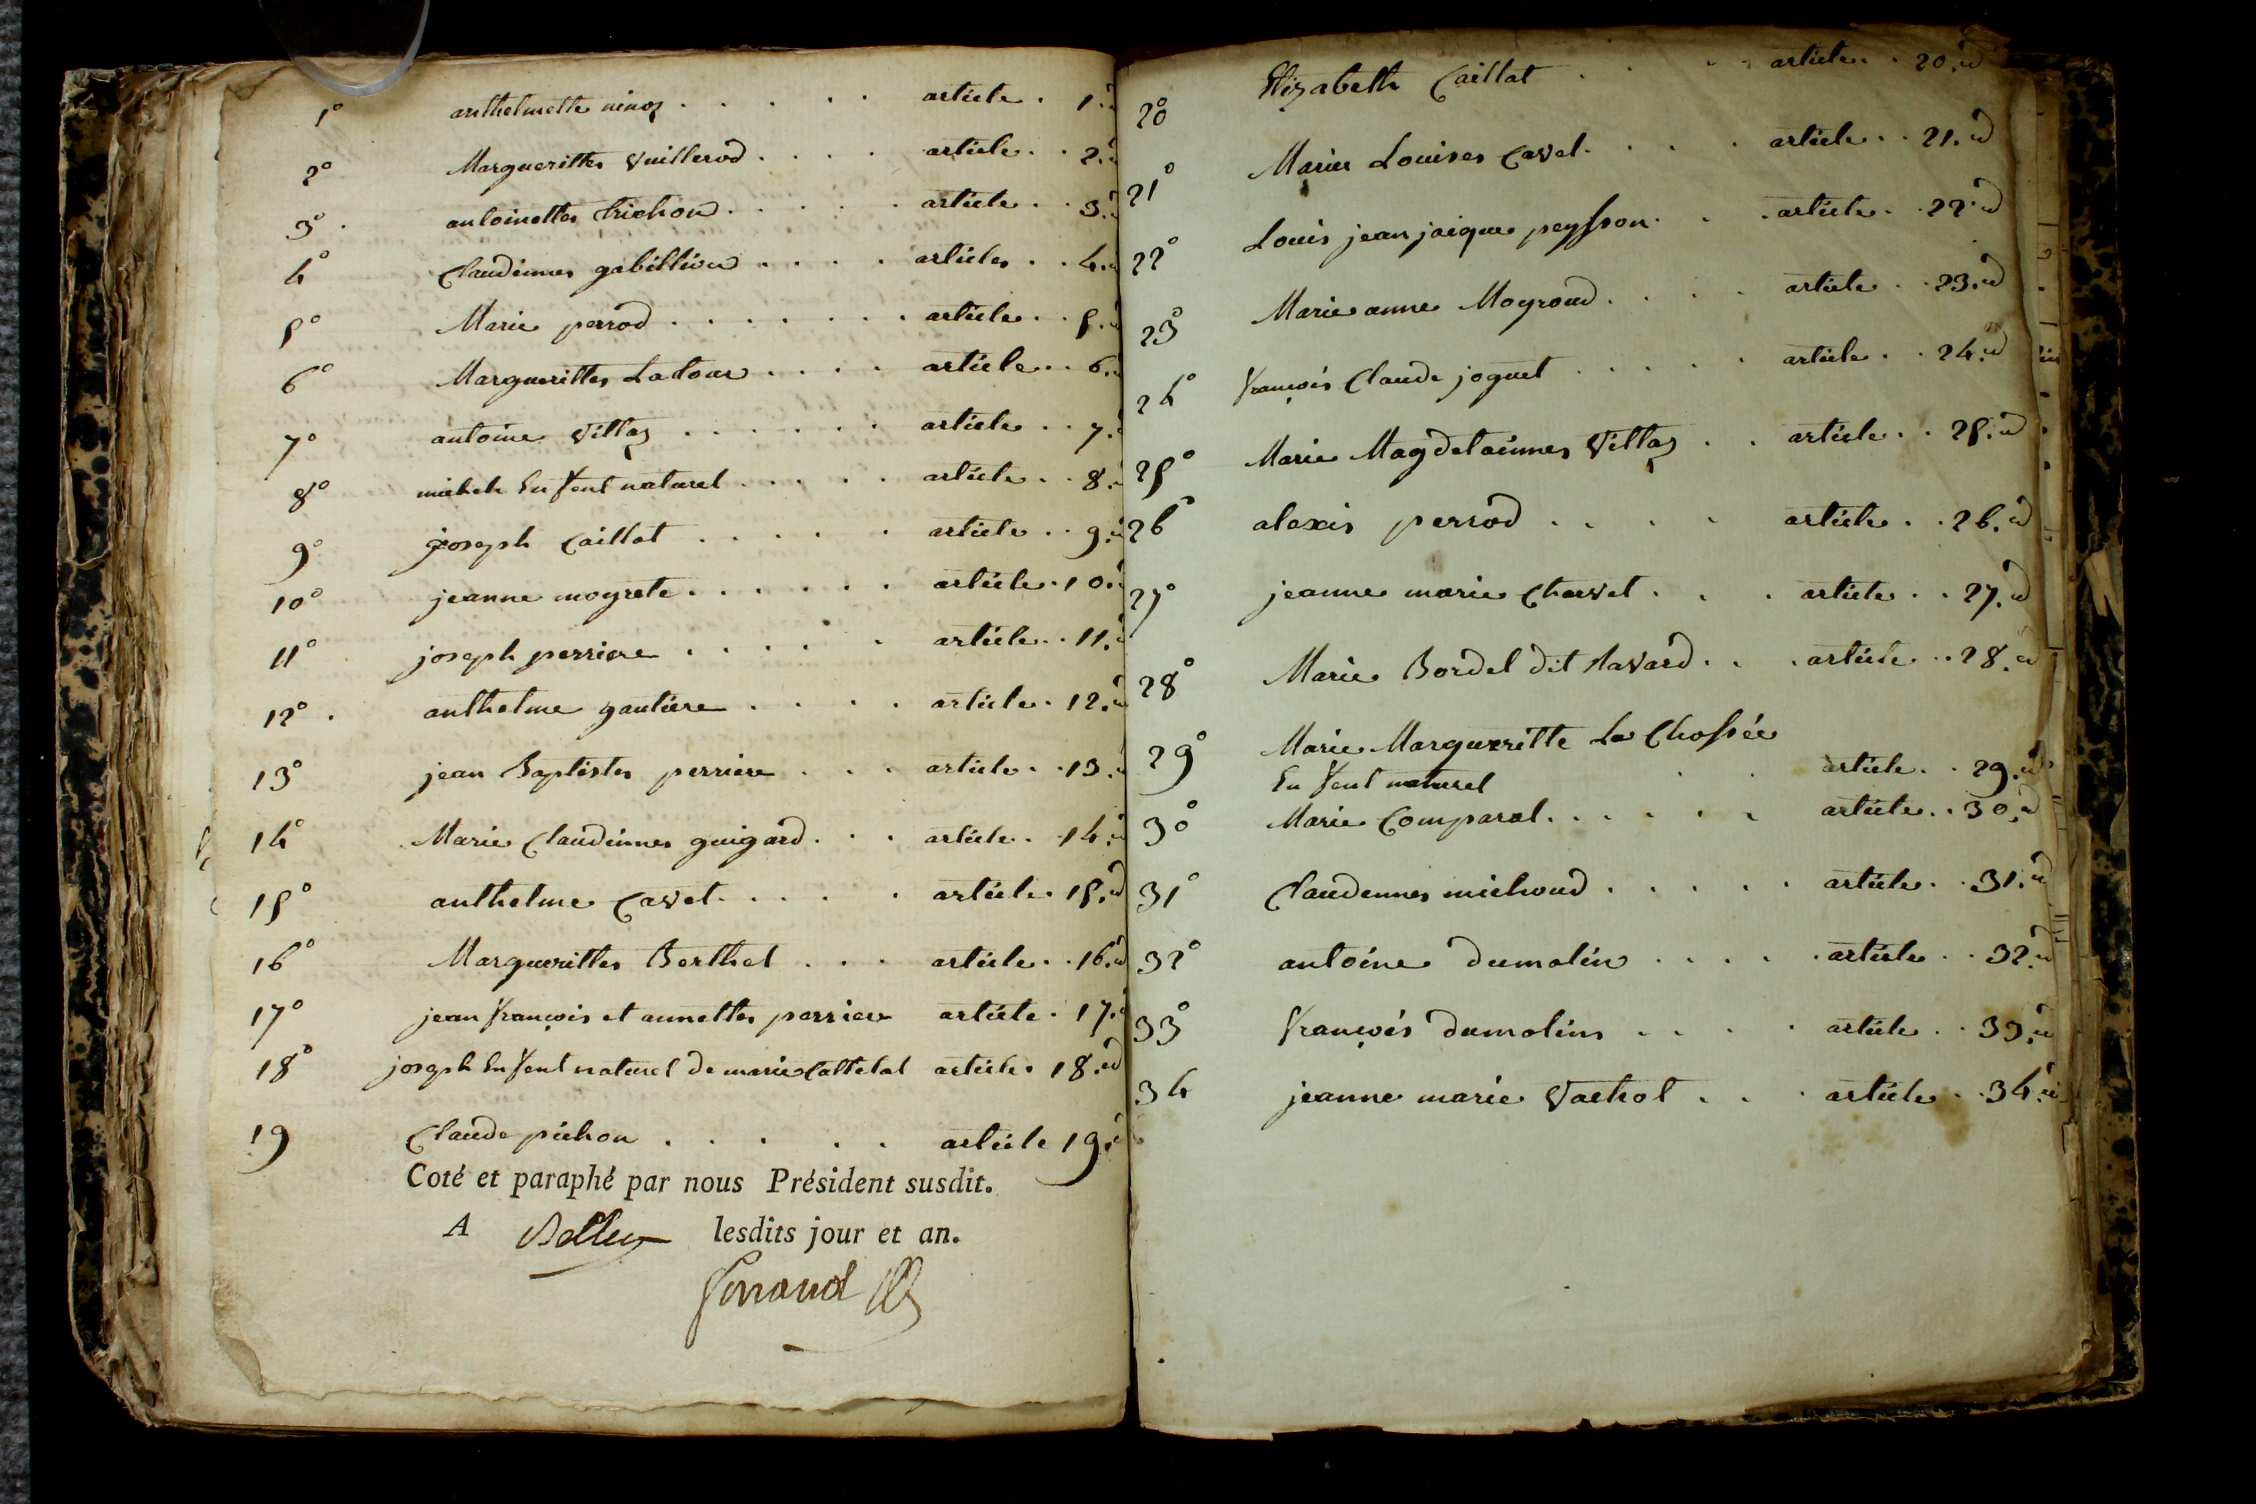 1° anthelmette ninoz . . . . . article . 1.
2° Margueritte Vuillerod . . . . article . . 2.
3° . antoinette trichon . . . . . article . . 3.
4° Claudinne gabillion . . . . article . . 4.
5° Marie perrod . . . . . . . article . . 5.
6° Margueritte Ladour . . . . article . . 6.
7° antoine Villaz . . . . . . article . . 7.
8° michele Enfent naturel . . . . . article . . 8.
9° joseph Caillat . . . . . article . . 9.
10° jeanne moyrete . . . . . . article . 10.
11° joseph perriere . . . . . article . . 11.
12° . anthelme gautiere . . . . article . 12.
13° jean Baptiste perriere . . . article . . 13.
14° Marie Claudinne guigard . . . article . 14.
15° anthelme Cavet . . . . . article . 15. d
16° Margueritte Berthet . . . article . . 16. d
17° jean françois et annette perriere article . 17.
18° joseph Enfent naturel de marie Cattelat article . 18. d
19 Claude pichon . . . . . article 19.
Coté et paraphé par nous Président susdit.
A Belley lesdits jour et an.
20° Elizabeth Caillat . . . article . . 20. d
21° Marie Louise Cavet . . . . article . . 21. d
22° Louis jean jaique peysson . . . article . . 22. d
23° Marie anne Moyroud . . . . article . . 23. d
24° françois Claude joguet . . . . . article . . 24. d
25° Marie Magdelainne Villaz . . article . . 25. d
26° alexis perrod . . . . article . . 26. d
27° jeanne marie Charvet . . . article . . 27. d
28° Marie Bordel dit Savard . . . article . . 28. d
29° Marie Margueritte La Chossée
Enfent naturel . . article . . 29. d
30° Marie Comparat . . . . . . article . . 30. d
31° Claudenne michoud . . . . . article . . 31. d
32° antoine dumolin . . . . . article . . 32. d
33° françois dumolin . . . . article . . 33. d
34 jeanne marie Vachot . . . article . . 34. d